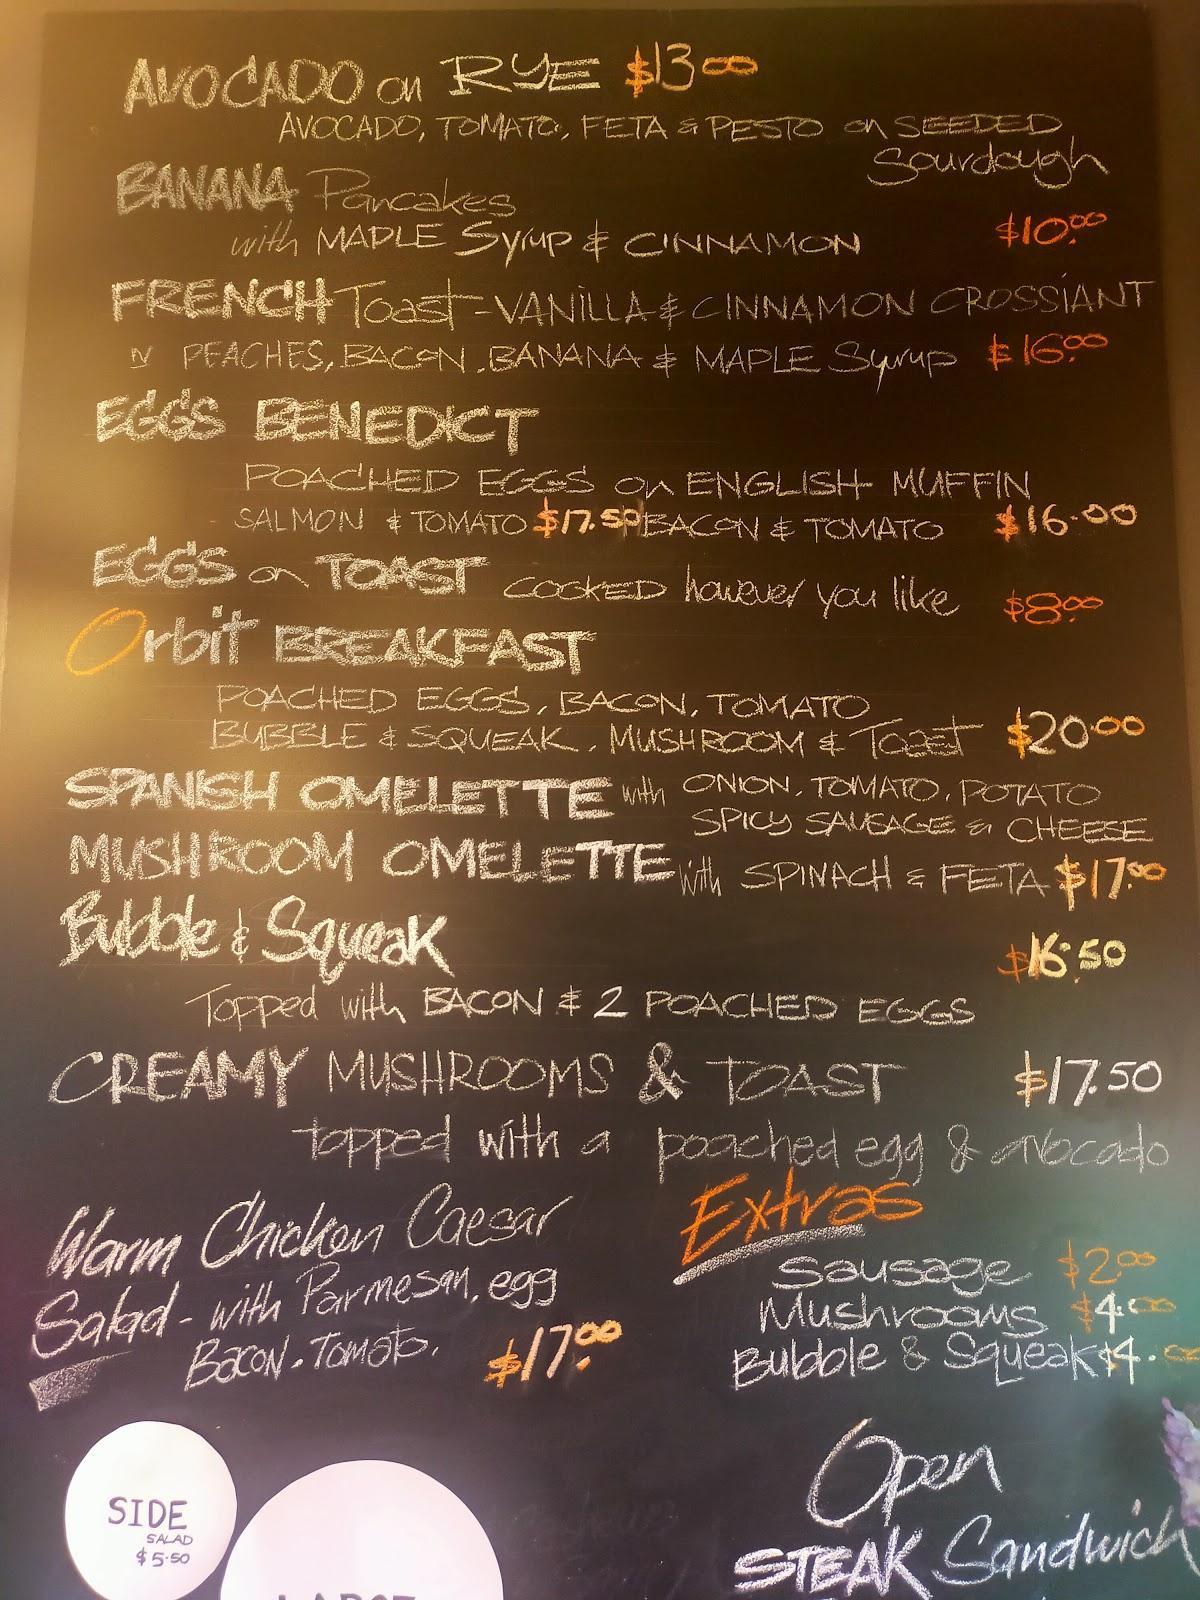 AVOCADO on RYE $13.00
AVOCADO, TOMATO, FETA & PESTO on SEEDED
Sourdough
BANANA Pancakes
with MAPLE Syrup & CINNAMON $10.00
FRENCH Toast - VANILLA & CINNAMON CROSSIANT
N PEACHES, BACON, BANANA & MAPLE Syrup $16.00
EGGS BENEDICT
POACHED EGGS on ENGLISH MUFFIN
SALMON & TOMATO $17.50 | BACON & TOMATO $16.00
EGGS on TOAST COOKED however you like $8.00
Orbit BREAKFAST
POACHED EGGS, BACON, TOMATO
BUBBLE & SQUEAK, MUSHROOM & Toast $20.00
SPANISH OMELETTE with ONION, TOMATO, POTATO
SPICY SAUSAGE & CHEESE
MUSHROOM OMELETTE with SPINACH & FETA $17.00
Bubble & Squeak $16.50
Topped with BACON & 2 POACHED EGGS
CREAMY MUSHROOMS & TOAST $17.50
topped with a poached egg & avocado
Warm Chicken Caesar
Salad - with Parmesan, egg
Bacon, Tomato. $17.00
Extras
Sausage $2.00
Mushrooms $4.00
Bubble & Squeak $4.00
SIDE
SALAD
$5.50
LARGE
Open
STEAK Sandwich